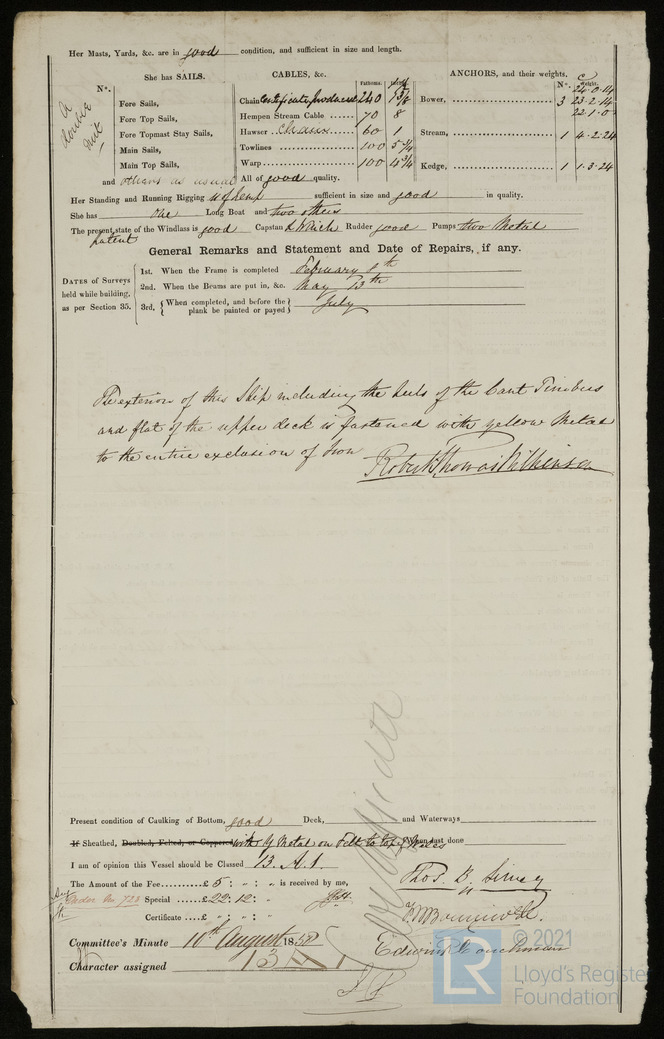 Her Masts, Yards, &c. are in good condition, and sufficient in size and length.
She has SAILS.
CABLES, &c.
ANCHORS, and their weights.
N°.
Fathoms.
N°.
Weight.
A double suit
Fore Sails,
Fore Top Sails,
Fore Topmast Stay Sails,
Main Sails,
Main Top Sails,
and others as usual
Chain Certificate produced 240 1 5/8
Hempen Stream Cable ...... 70 8
Hawser chain ...... 60 1
Towlines ...... 100 5 3/4
Warp ...... 100 4 3/4
All of good quality.
24.0.14
Bower, ...... 3 23.2.14
22.1.0
Stream, ...... 1 4.2.24
Kedge, ...... 1 1.3.24
Her Standing and Running Rigging of hemp sufficient in size and good in quality.
She has one Long Boat and two others
The present state of the Windlass is good Capstan Rudder good Pumps two Metal
patent
General Remarks and Statement and Date of Repairs, if any.
DATES of Surveys held while building, as per Section 35.
1st. When the Frame is completed February 8th
2nd. When the Beams are put in, &c. May 13th
3rd. { When completed, and before the plank be painted or payed } July
The exterior of this Ship including the heels of the Cant Timbers
and flat of the upper deck is fastened with yellow Metal
to the entire exclusion of Iron
Robert Thomas Wilkinson
Present condition of Caulking of Bottom, good Deck, and Waterways
If Sheathed, Doubled, Felted, or Coppered with Y Metal on Felt to top of Wales When last done
I am of opinion this Vessel should be Classed 13. A.1.
The Amount of the Fee ......£ 5 : „ : „ is received by me,
Under No 723 Special ......£ 22 : 12 : „
Certificate ....£ „ : „ : „
Committee's Minute 10th August 1858
Character assigned 13 A 1
© 2021
Lloyd's Register
Foundation
LR